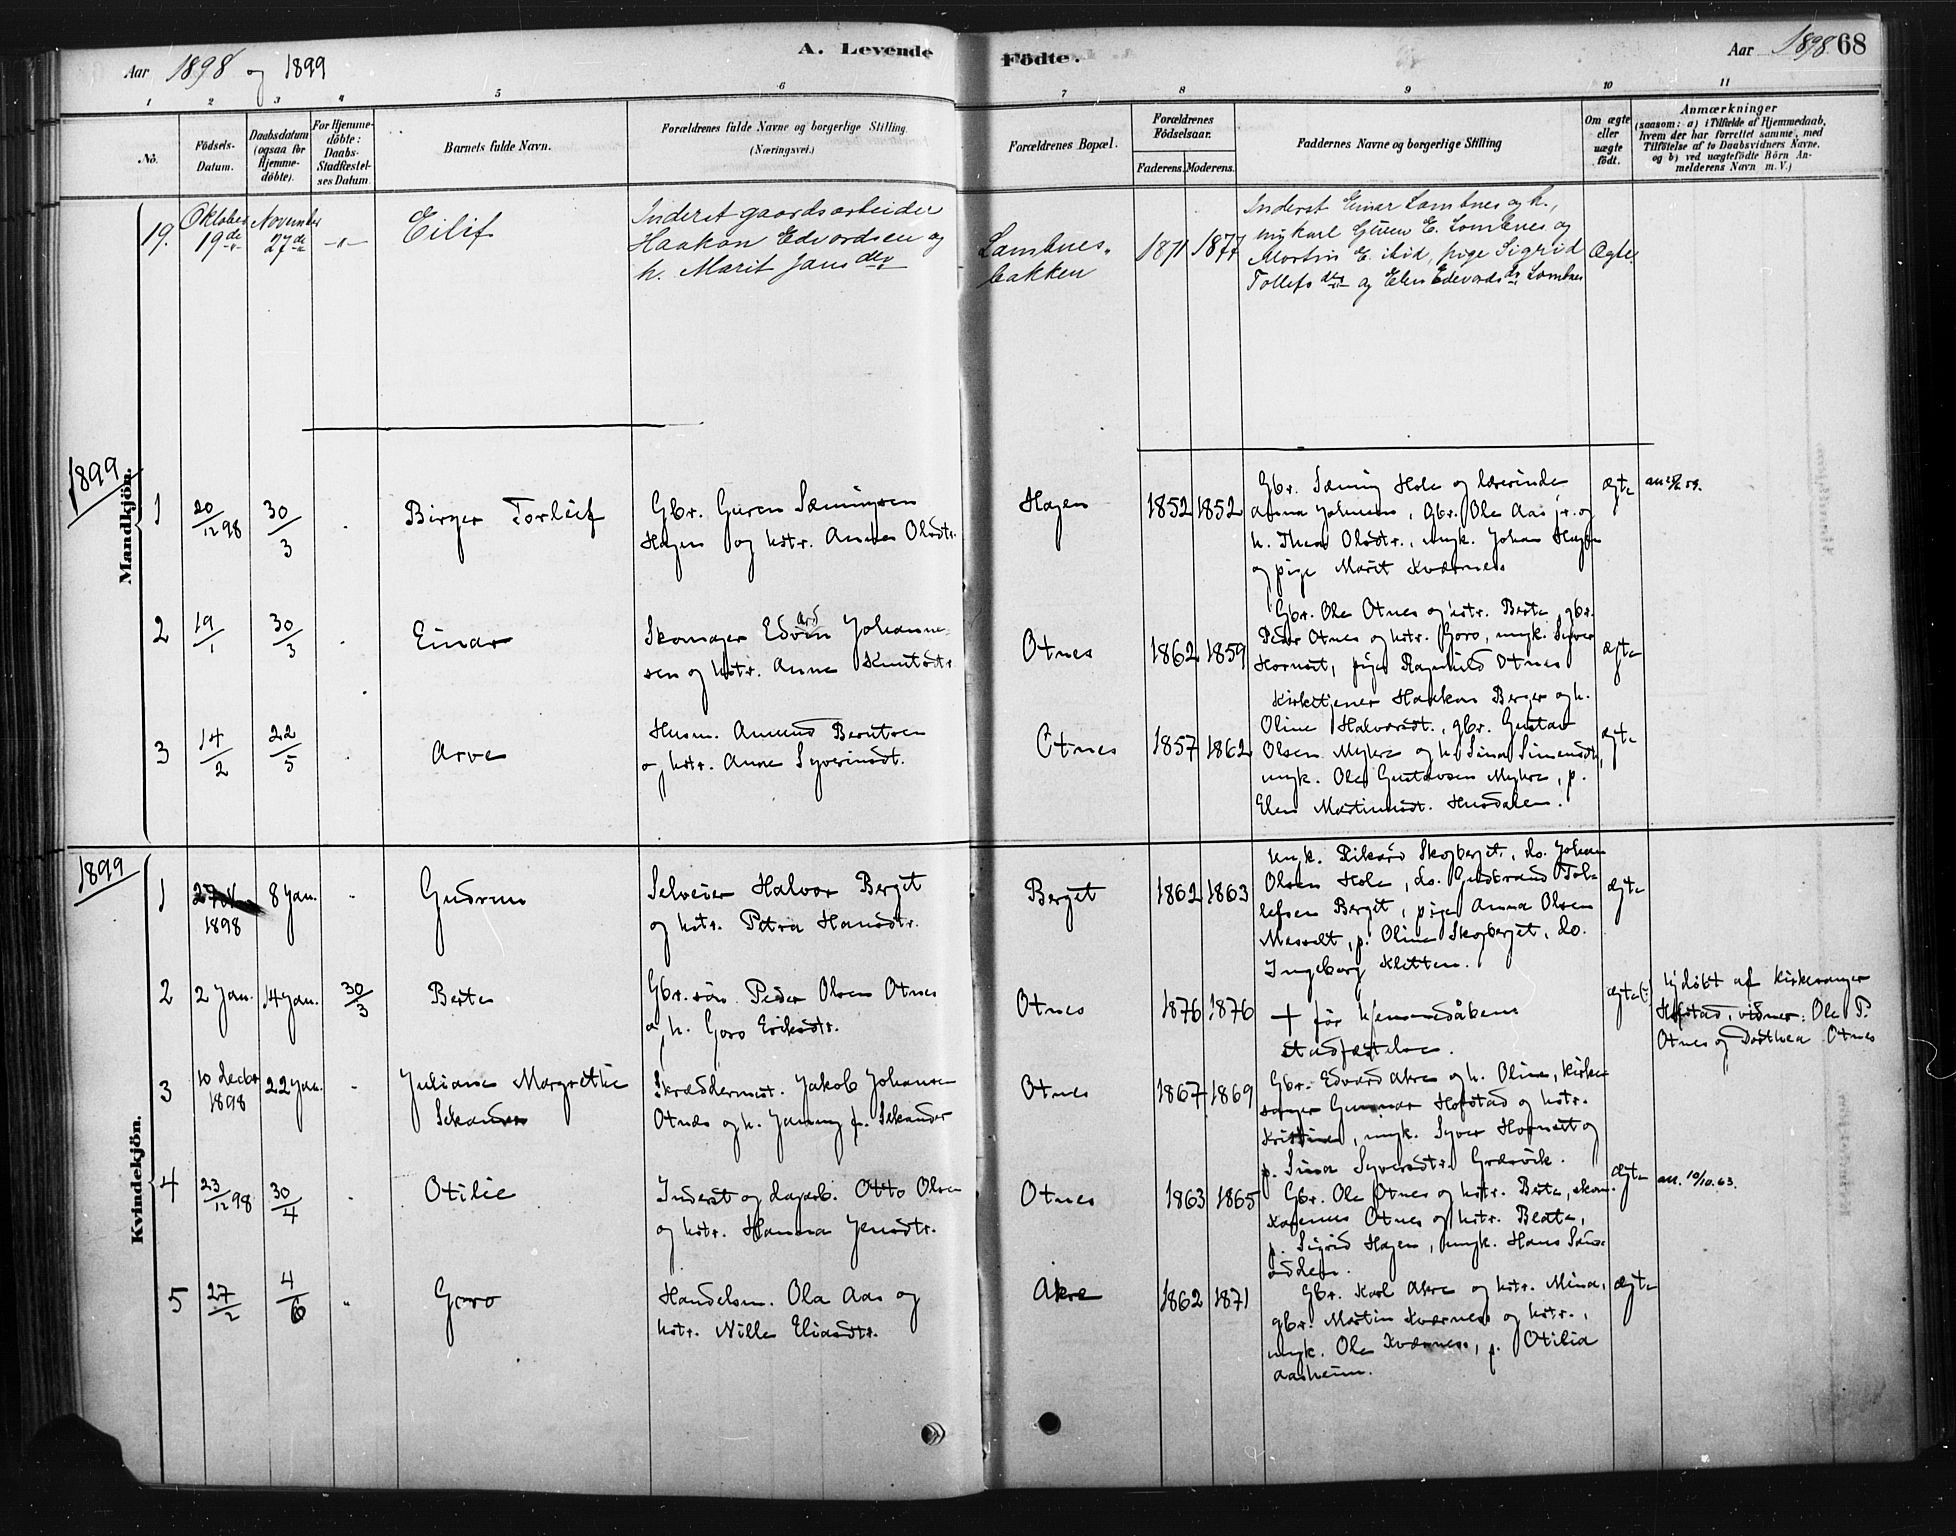 A. Levende
Aar 1898 og 1899
1 2 3 4 5 6
No.
Födsels-
Datum.
Daabsdatum
(ogsaa for
Hjemme-
döbte).
For Hjemme-
döbte:
Daabs-
Stadfæstel-
ses Datum
Barnets fulde Navn.
Forældrenes fulde Navne og borgerlige Stilling.
(Næringsvei.)
Mandkjön.
19.
Oktober
19de
November
27de
-"-
Eilif
Inderst gaardsarbeider
Haakon Edvardsen og
h. Marit Jansdtr
1899
1
20/12 98
30/3
Birger Torleif
Gbr. Guren Sæmingsen
Hagen og hstr. Anne Olsdtr.
2
19/1
30/3
Einar
Skomager Edvin Johanne-
ard
sen og hstr. Anne Knutsdtr.
3
14/2
22/5
Arve
Husm. Amund Berntsen
og hstr. Anne Syverinsdt.
1899
Kvindekjön.
1
1898
8 Jan.
"
Gudrun
Selveier Halvor Berget
og hstr. Petra Hansdtr.
2
2 Jan.
14 Jan.
30/3
Berte
Gbr. søn Peder Olsen Otnes
og h. Goro Eriksdtr.
3
10 decbr
1898
22 Jan.
"
Juliane Margrethe
Sekander
Skræddermest. Jakob Johansen
Otnes og h. Jenny f. Sekander
4
23/12 98
30/4
Otilie
Inderst og dagarb. Otto Olsen
og hstr. Hanna Jensdtr.
5
27/2
4/6
"
Goro
Handelsm. Ola Aas og
hstr. Nille Eliasdtr.
Födte.
Aar 1898 68
7 8 9 10 11
Forældrenes Bopæl.
Forældrenes
Födselsaar.
Faderens. Moderens.
Faddernes Navne og borgerlige Stilling
Om ægte
eller
uægte
födt.
Anmærkninger
(saasom: a) i Tilfælde af Hjemmedaab,
hvem der har forrettet samme, med
Tilföielse af to Daabsvidners Navne,
og b) ved uægtefödte Börn An-
melderens Navn m. V.)
Lambnes-
bakken
1871 1877
Inderst Einar Lambnes og h.,
ungkarl E. Lombnes og
Martin E. ibid, pige Sigrid
Tollefsdtr og Elen Edvardsdr Lombnes
Ægte.
Hagen
1852 1852
Gbr. Sæming Hole og lærerinde
Anna Johnsen, Gbr. Ole Aas jr. og
h. Thea Olsdtr., ungk. Johan Hagen
og pige Marit Kværnes
ægte
Otnes
1862 1859
Gbr. Ole Otnes og hstr. Berte, gbr.
Peder Otnes og hstr. Goro, ungk. Syver
Hornset, pige Ragnhild Otnes
ægte
Otnes
1857 1862
Kirketjener Haakon Berger og h.
Oline Halvorsdt., gbr. Gustav
Olsen Myhre og h. Sina Simensdt,
ungk. Ole Gustavsen Myhre, p.
Elen Martinusdt. Husdalen.
ægte
Berget
1862 1863
Ungk. Rikard Skogberget, do. Johan
Olsen Hole, do. Gudbrand Tol-
lefsen Berget, pige Anna Olsen
Messelt, p. Oline Skogberget, do.
Ingeborg Kletten.
ægte
Otnes
1876 1876
+ før hjemmedåbens
stadfæstelse.
ægte
hjdøbt af kirkesanger
Hofstad, vidner: Ole P.
Otnes og Dorthea Otnes
Otnes
1867 1869
Gbr. Edvard Akre og h. Oline, Kirke-
sanger Gunnar Hofstad og hstr.
Kristine, ungk. Syver Hornset og
p. Sina Syversdtr. Græsvik.
Otnes
1863 1865
Gbr. Ole Otnes og hstr. Berte, skom.
Otnes og hstr. Beate,
p. Sigrid Hagen, ungk. Hans
ægte
an. 10/10.63.
Akre
1862 1871
Gbr. Karl Akre og hstr. Mina,
gbr. Martin Kværnes og hstr.,
ungk. Ole Kværnes, p. Otilia
Aasheim.
ægte